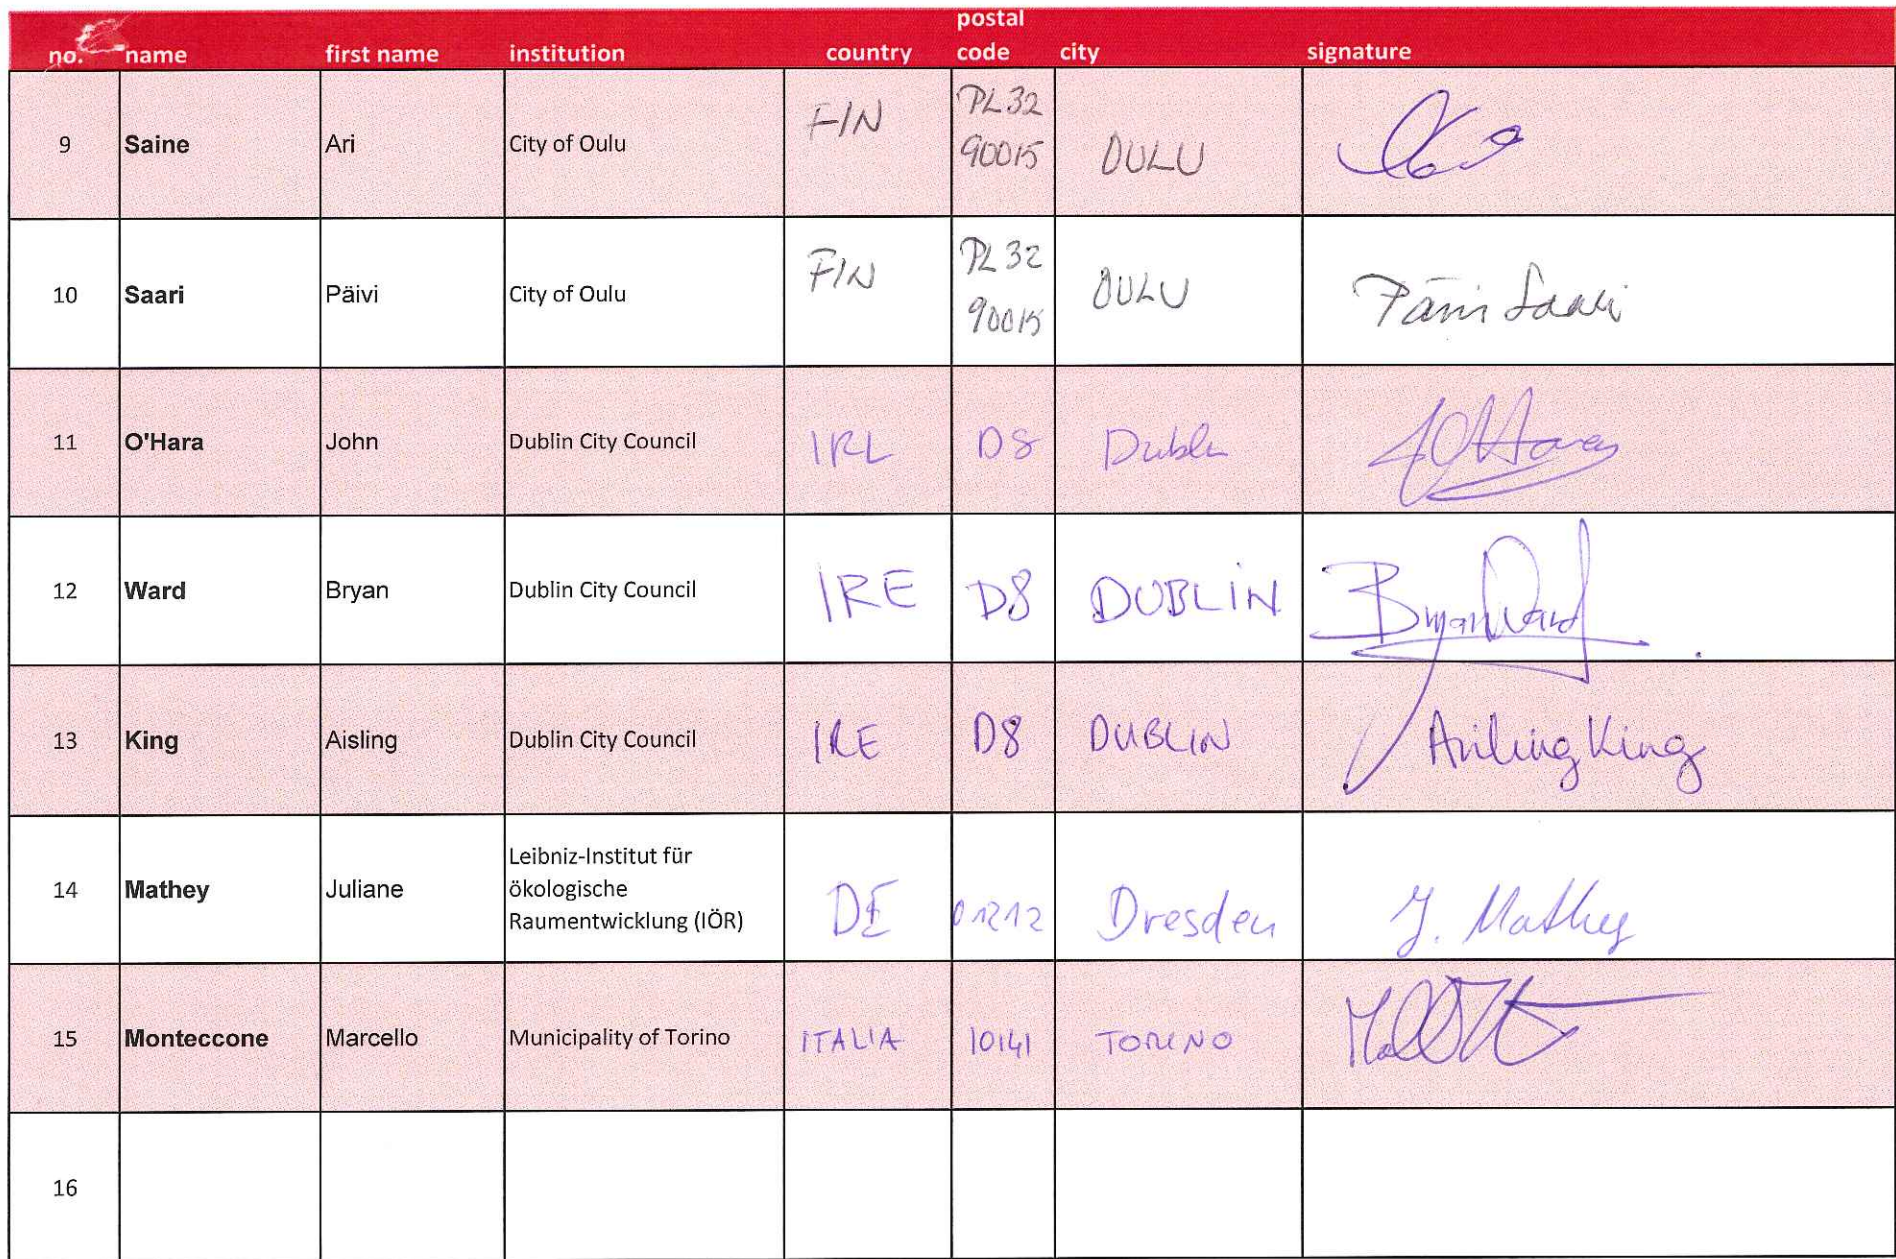 no. name first name institution country postal code city signature
9 Saine Ari City of Oulu FIN PL 32 90015 OULU
10 Saari Päivi City of Oulu FIN PL 32 90015 OULU Päivi Saari
11 O'Hara John Dublin City Council IRL D8 Dublin JO'Hara
12 Ward Bryan Dublin City Council IRE D8 DUBLIN Bryan Ward
13 King Aisling Dublin City Council IRE D8 DUBLIN Aisling King
14 Mathey Juliane Leibniz-Institut für
ökologische
Raumentwicklung (IÖR) DE 01212 Dresden J. Mathey
15 Monteccone Marcello Municipality of Torino ITALIA 10141 TORINO
16